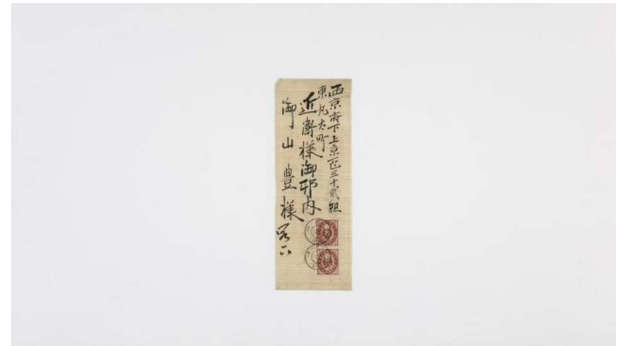 西京府下上京区三十貮組
東丸太町
近衛様御邸内
御山豊様